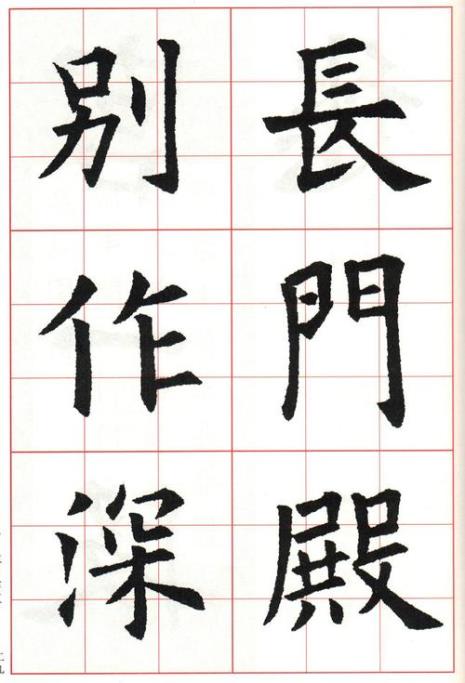 長門殿
別作深